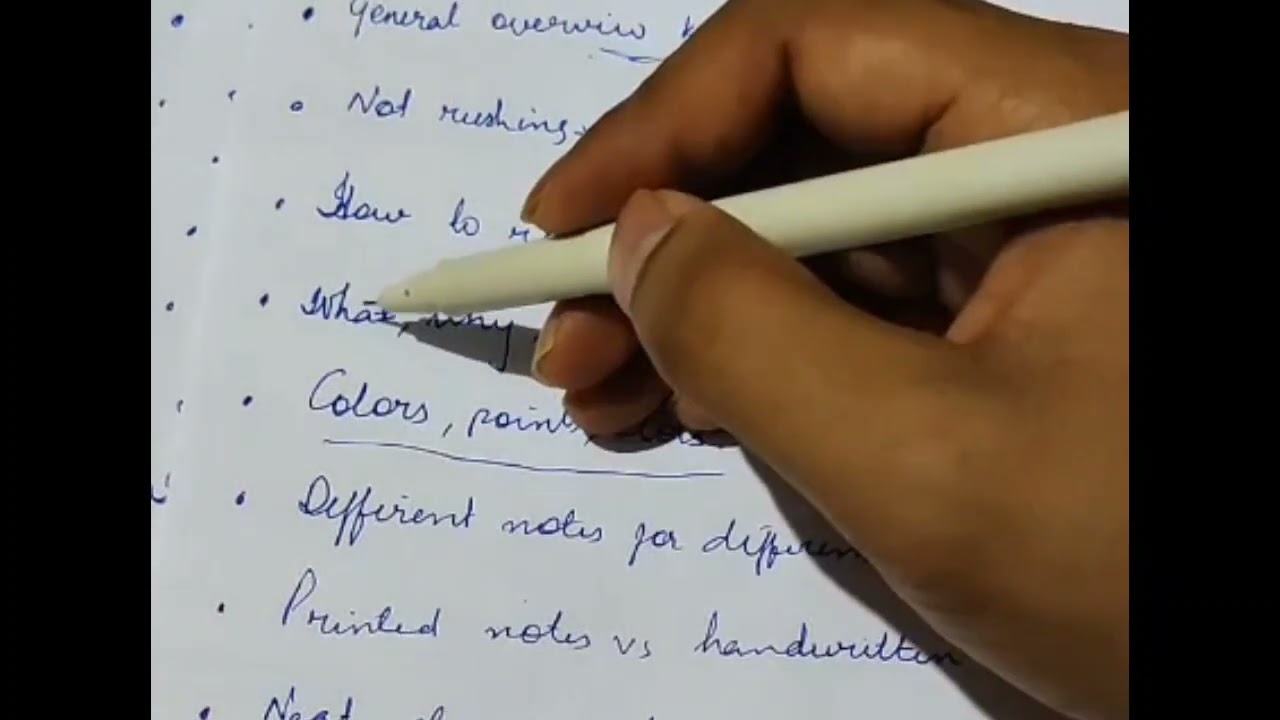 • General overviw
• Not rushing
• How to
• What, why
• Colors, points,
• Different notes for different
• Printed notes vs handwritten
• Neat